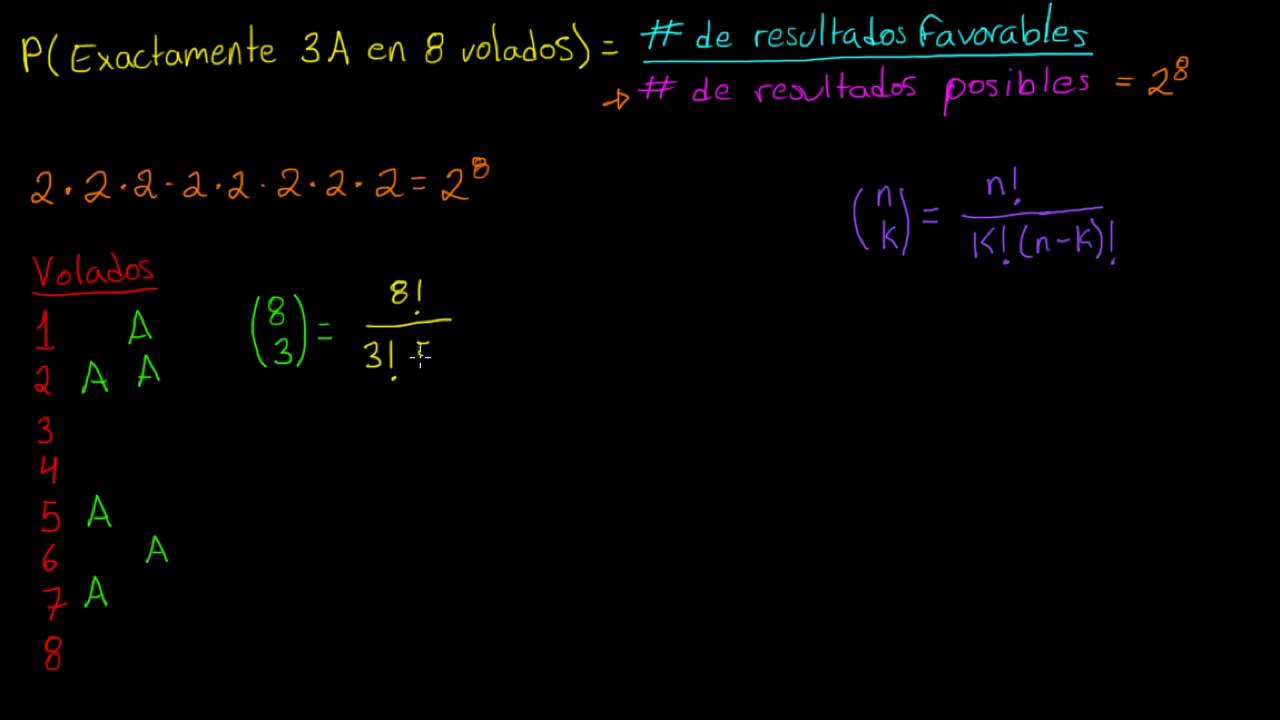 P(Exactamente 3A en 8 volados) = # de resultados favorables
→ # de resultados posibles = 2⁸
2·2·2·2·2·2·2·2 = 2⁸
(n k) = n! / K!(n-k)!
Volados
(8 3) = 8! / 3! 5
1 A
2 A A
3
4
5 A
6 A
7 A
8